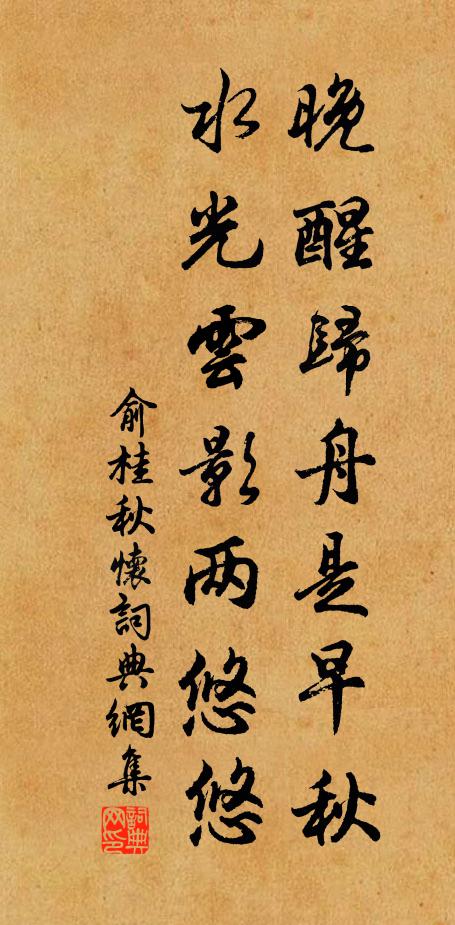 晚醒歸舟是早秋
水光雲影两悠悠
俞桂秋懷詞典網集
詞典网印